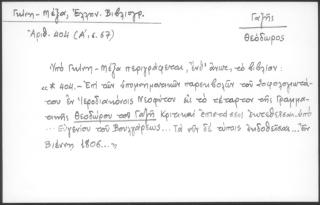 Γκίνη - Μέξα, Ἑλλην. Βιβλιογρ.
Γαζῆς
Θεόδωρος
Ἀριθ. 404 (Α', σ. 67)
Ὑπὸ Γκίνη - Μέξα περιγράφεται, ἐνθ' ἄνωτ., τὸ βιβλίον:
«* 404. - Ἐπὶ τῶν ὑπομνηματικῶν παρεκβολῶν τοῦ σοφολογιωτά-
του ἐν Ἱεροδιακόνοις Νεοφύτου εἰς τὸ τέταρτον τῆς Γραμμα-
τικῆς Θεοδώρου τοῦ Γαζῆ κριτικαὶ ἐπιστάσεις συντεθεῖσαι ὑπὸ
... Εὐγενίου τοῦ Βουλγάρεως... Τὰ νῦν δὲ τύποις ἐκδοθεῖσαι... Ἐν
Βιέννῃ 1806...»